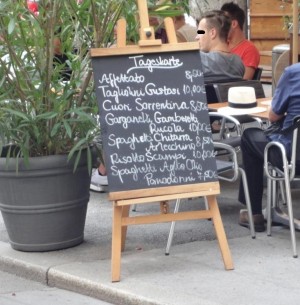 Tageskarte
Affettato 8,00
Taglioni Gustavi 10,00€
Cuori Sorrentina 8,00€
Garganelli Gamberetti
Rucola 10,00€
Spaghetti Chitarra
Arlecchino 8,50€
Risotto Scampi 10,00€
Spaghetti Aglio Olio
Pomodorini 7,50€